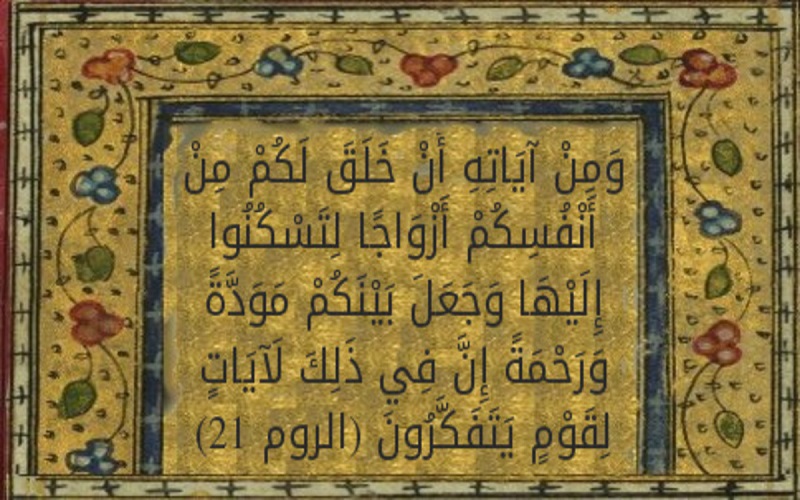 وَمِنْ آيَاتِهِ أَنْ خَلَقَ لَكُمْ مِنْ
أَنْفُسِكُمْ أَزْوَاجًا لِتَسْكُنُوا
إِلَيْهَا وَجَعَلَ بَيْنَكُمْ مَوَدَّةً
وَرَحْمَةً إِنَّ فِي ذَلِكَ لَآيَاتٍ
لِقَوْمٍ يَتَفَكَّرُونَ (الروم 21)